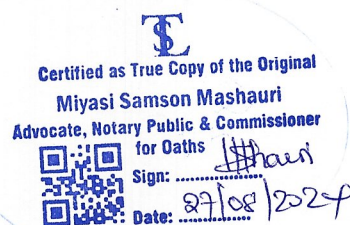 TLS
Certified as True Copy of the Original
Miyasi Samson Mashauri
Advocate, Notary Public & Commissioner
for Oaths
Sign: ..................
Date: 27/08/2024